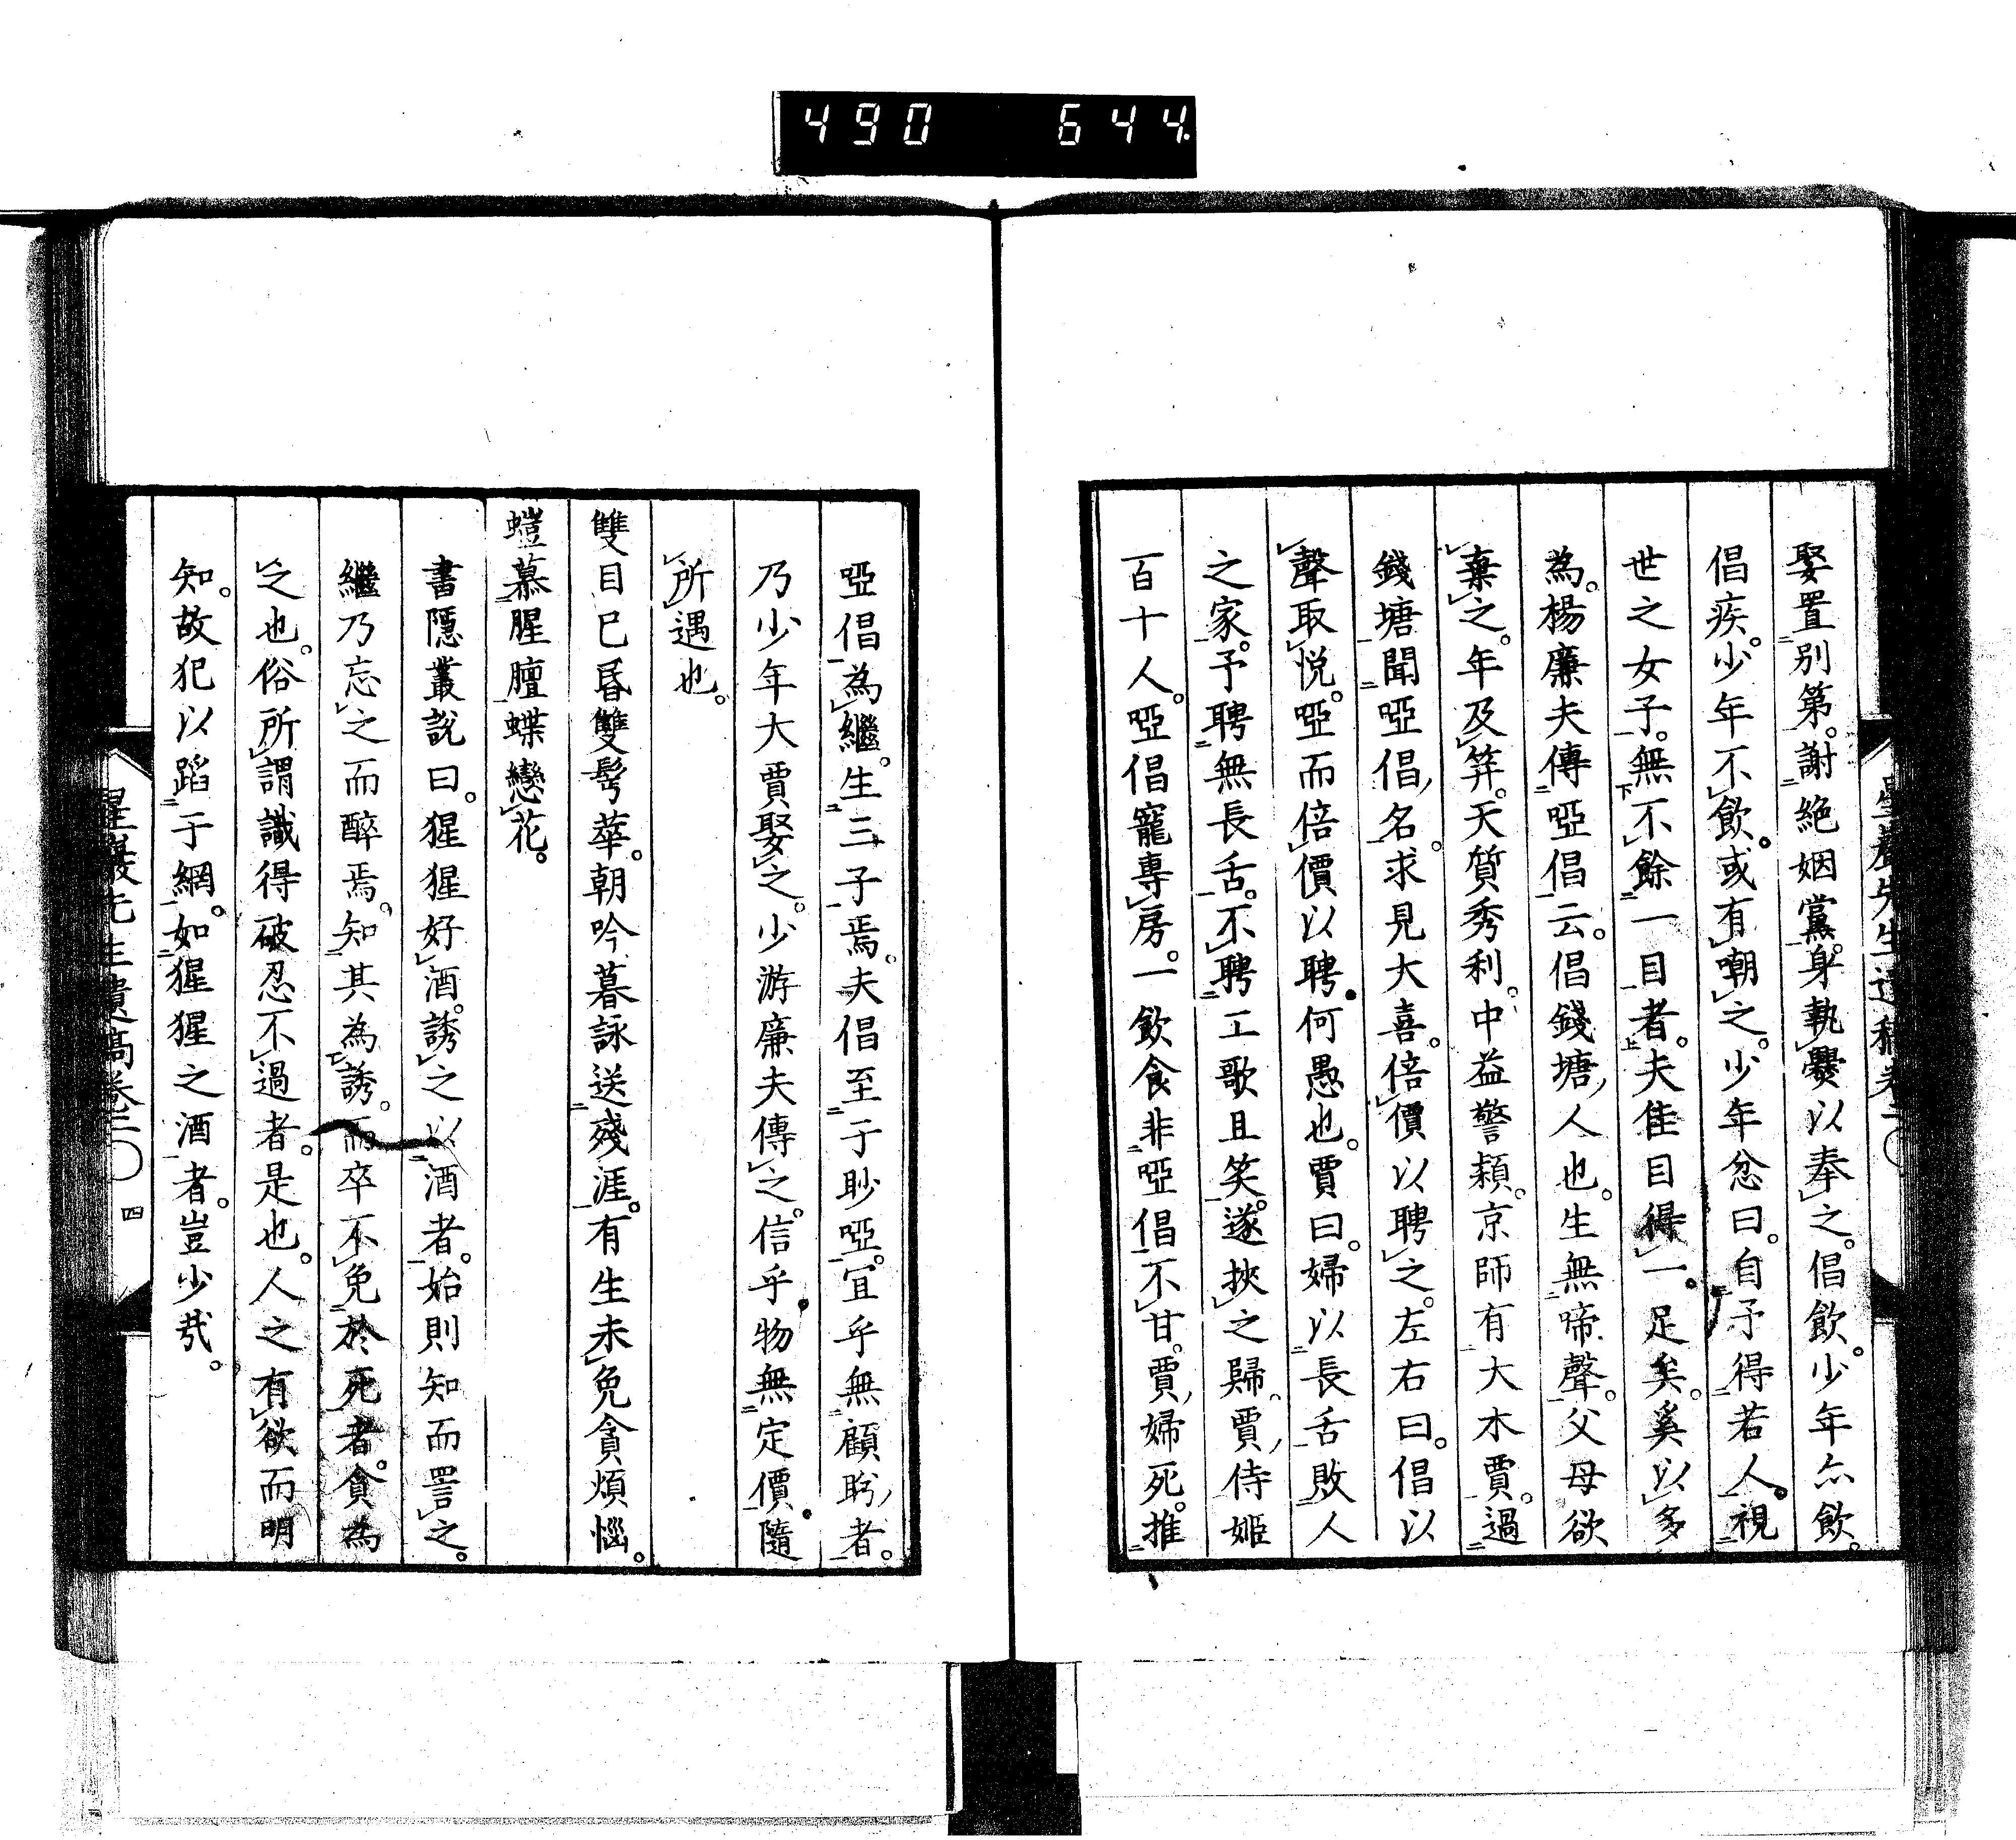 490 644
娶置別第。謝絶姻黨。身執爨以奉之。倡飲。少年亦飲。
倡疾。少年不飲。或有嘲之。少年忿曰。自予得若人。視
世之女子。無不餘一目者。夫佳目得一。足矣。奚以多
為。楊廉夫傳啞倡云。倡錢塘人也。生無啼聲。父母欲
棄之。年及笄。天質秀利。中益警纇。京師有大木賈。過
錢塘聞啞倡名。求見大喜。倍價以聘之。左右曰。倡以
聲取悦。啞而倍價以聘。何愚也。賈曰。婦以長舌敗人
之家。予聘無長舌。不聘工歌且笑。遂挾之歸。賈侍姬
百十人。啞倡寵專房。一飲食非啞倡不甘。賈婦死。推
啞倡為繼。生三子焉。夫倡至于眇啞。宜乎無顧眄者。
乃少年大賈娶之。少游廉夫傳之。信乎。物無定價。隨
所遇也。
雙目已昏雙髩華。朝吟暮詠送殘涯。有生未免貪煩惱。
螘慕腥膻蝶戀花。
書隱叢説曰。猩猩好酒。誘之以酒者。始則知而詈之。
繼乃忘之而醉焉。知其為誘。而卒不免於死者。貪為
之也。俗所謂識得破忍不過者。是也。人之有欲而明
知。故犯以蹈于網。如猩猩之酒者。豈少哉。
星巖先生遺稿卷二〇 四